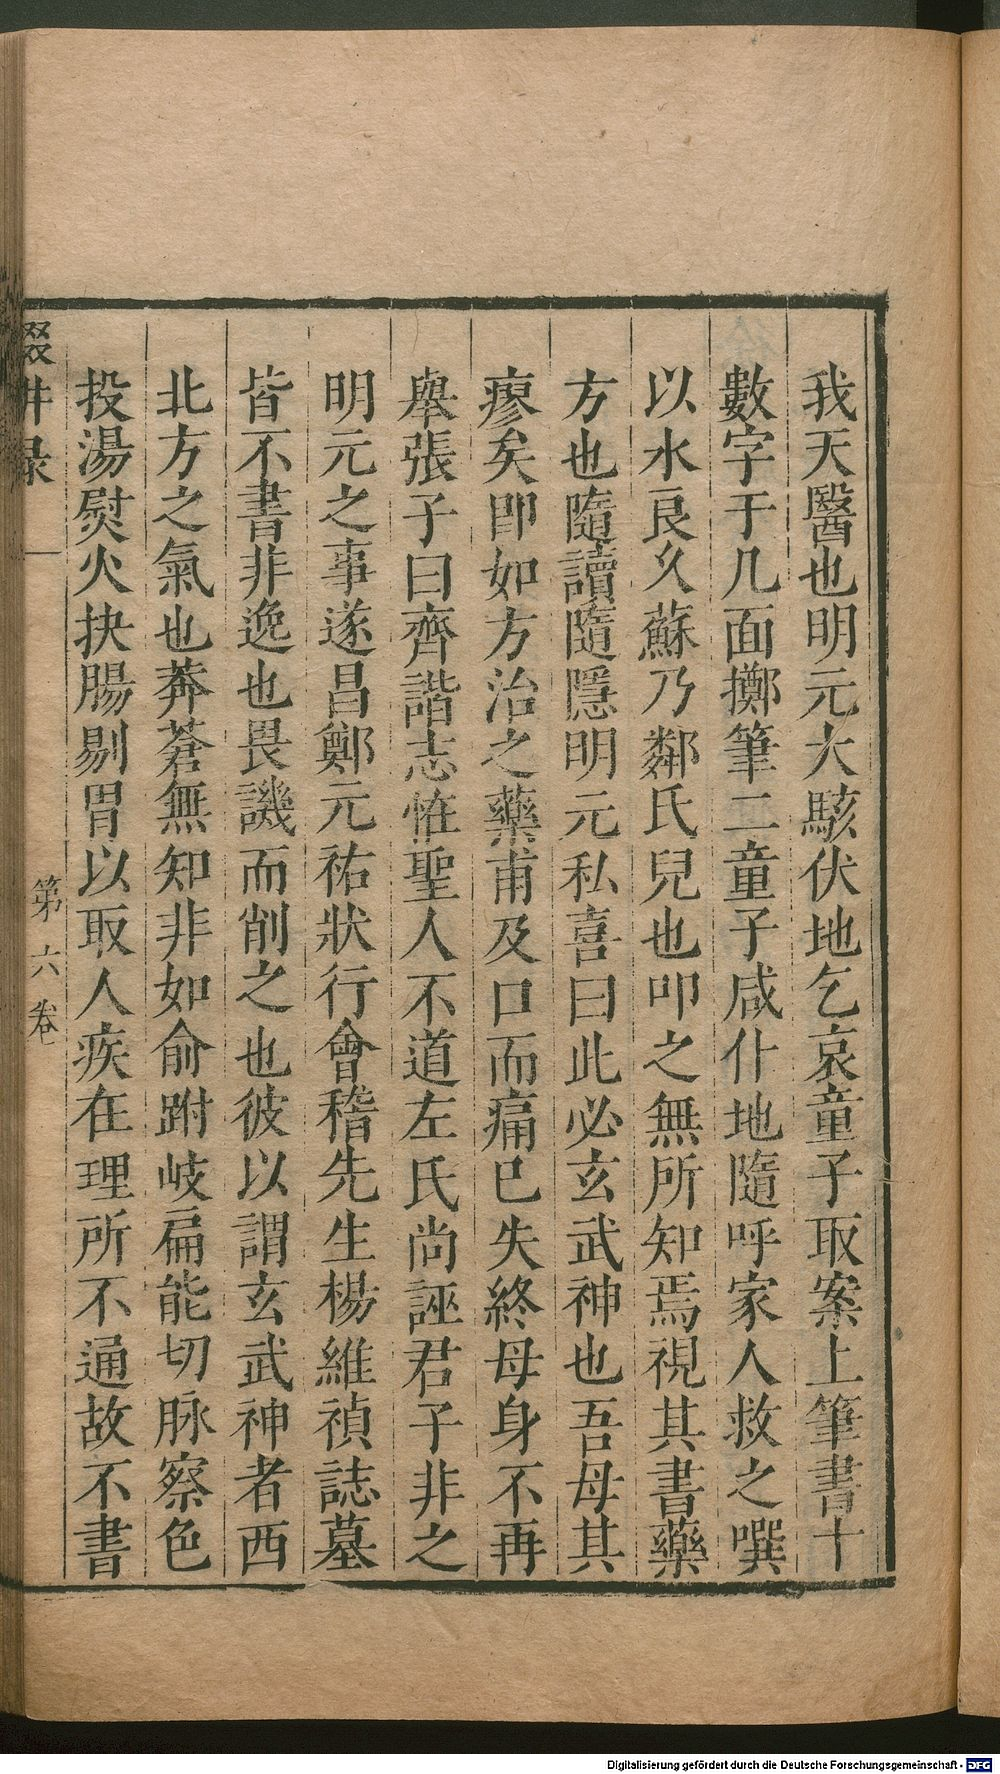 我天醫也明元大駭伏地乞哀童子取案上筆書十
數字于几面擲筆二童子咸仆地隨呼家人救之噀
以水良久蘇乃鄰氏兒也叩之無所知焉視其書藥
方也隨讀隨隱明元私喜曰此必玄武神也吾母其
瘳矣卽如方治之藥甫及口而痛已失終母身不再
舉張子曰齊諧志恠聖人不道左氏尚誣君子非之
明元之事遂昌鄭元祐狀行會稽先生楊維禎誌墓
皆不書非逸也畏譏而削之也彼以謂玄武神者西
北方之氣也莽蒼無知非如俞跗岐扁能切脉察色
投湯熨火抉腸剔胃以取人疾在理所不通故不書
輟畊录 第六卷
Digitalisierung gefördert durch die Deutsche Forschungsgemeinschaft - DFG